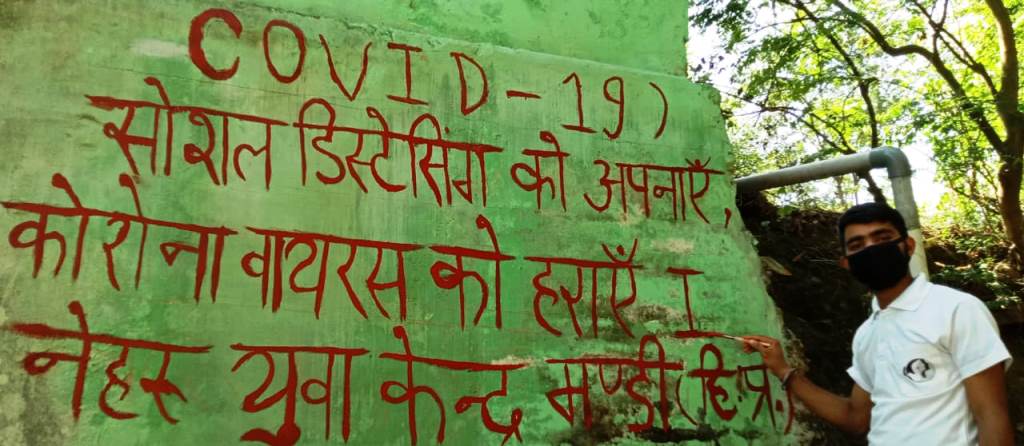 COVID-19)
सोशल डिस्टेसिंग को अपनाएँ,
कोरोना वायरस को हराएँ I
नेहरू युवा केन्द्र मण्डी (हि.प्र.)